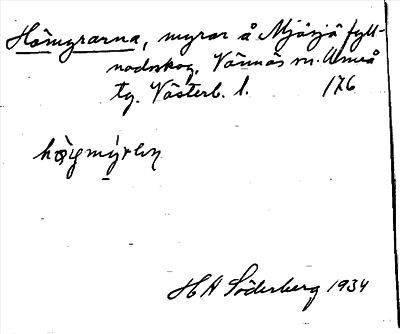 Hömyrarna, myrar å Mjösjö fyll-
nadsskog, Vännäs sn. Umeå
tg. Västerb. l. 176
HA Söderberg 1934